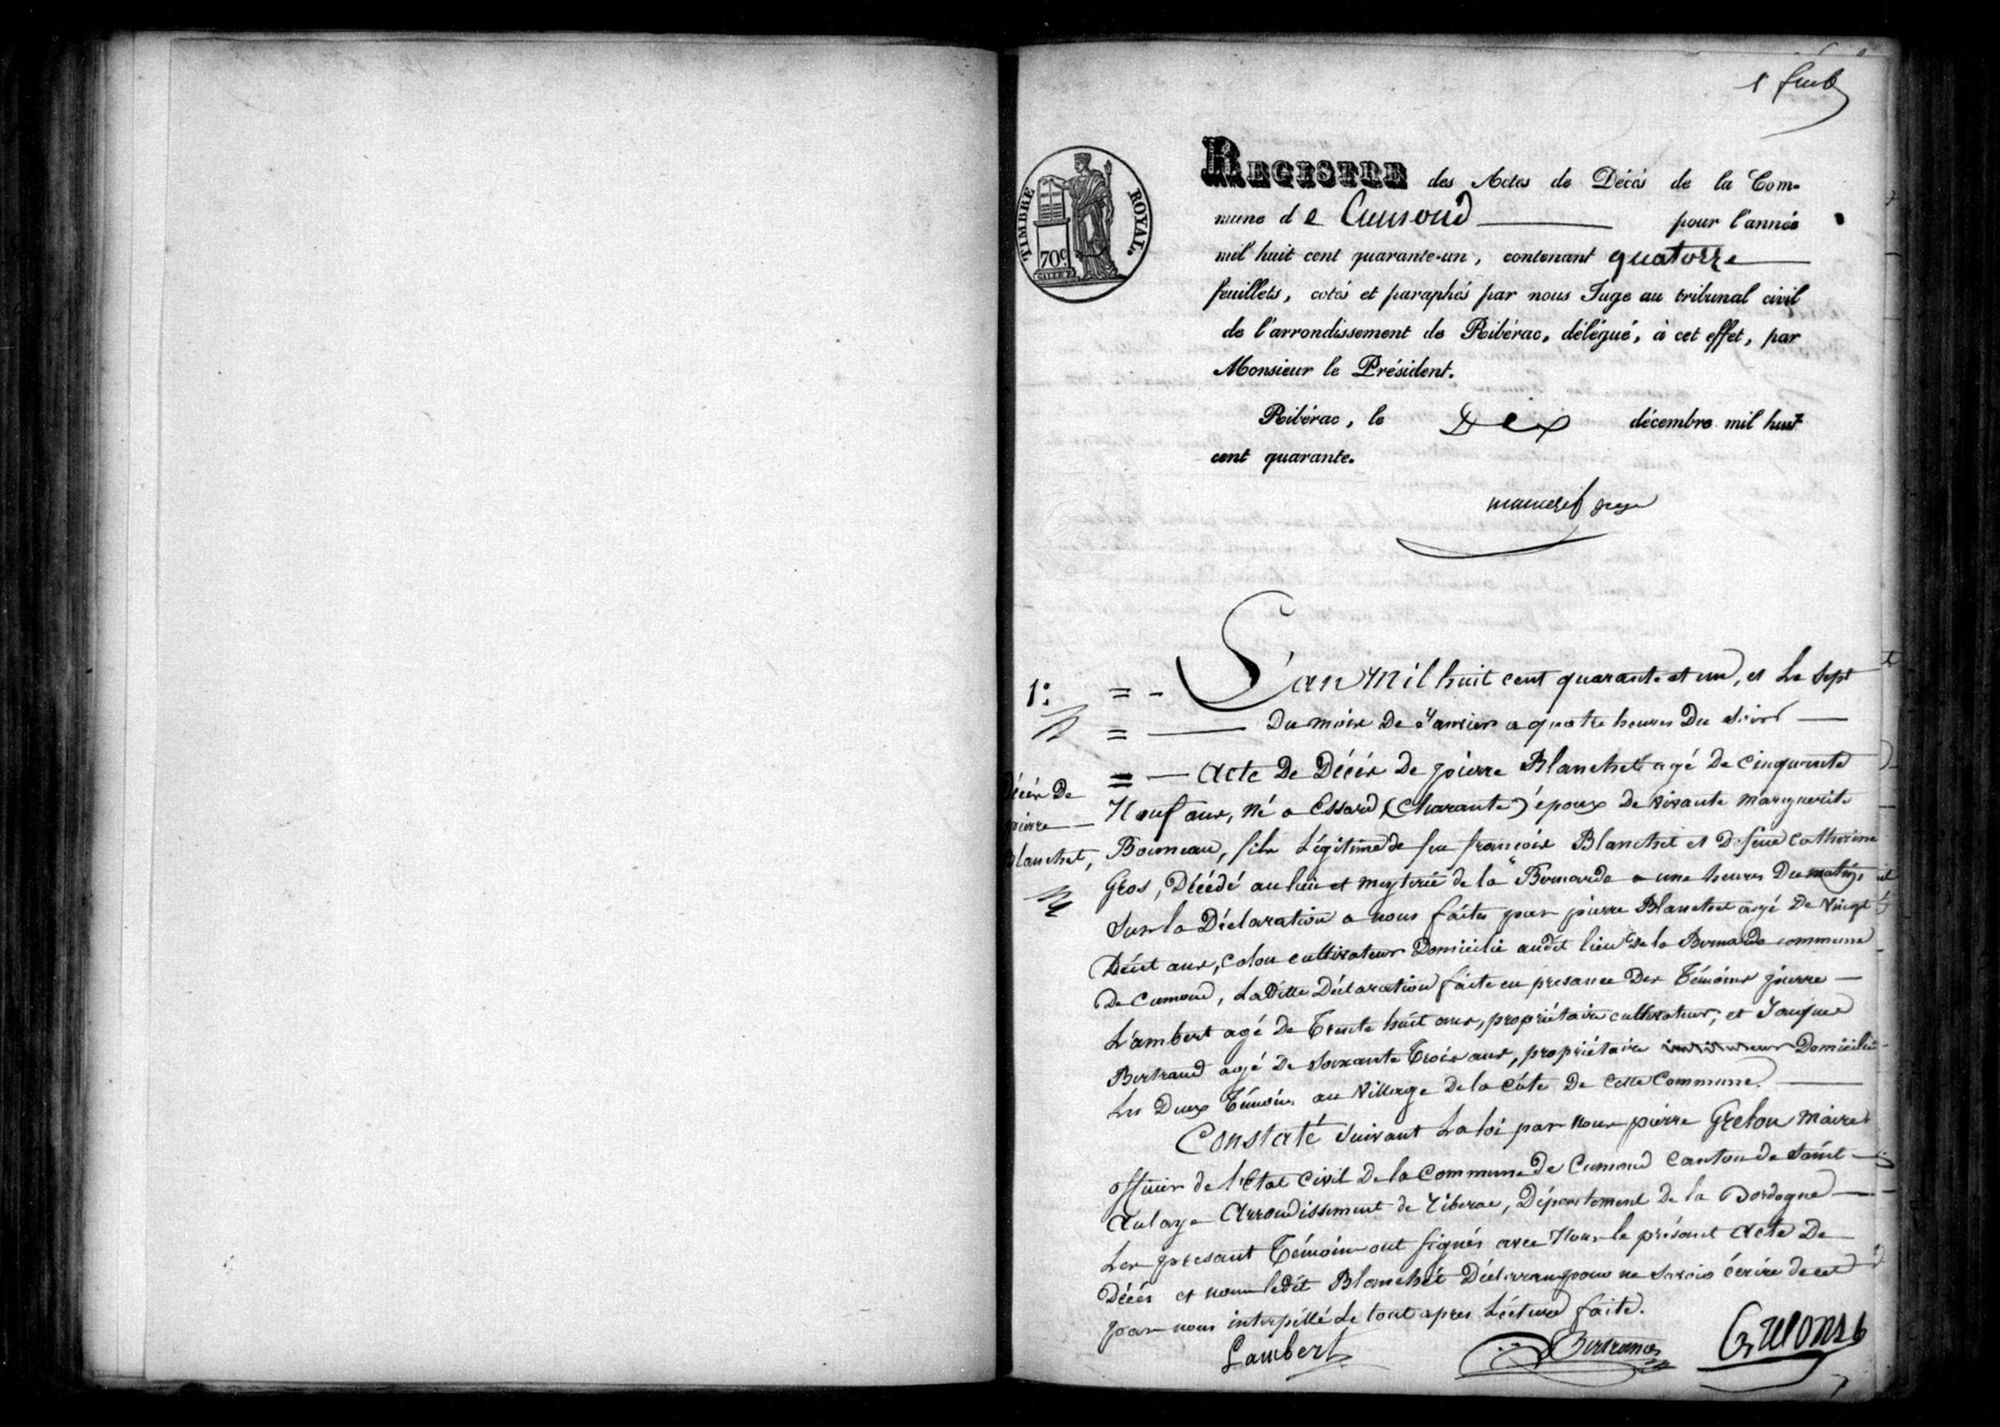 1 feuil
TIMBRE ROYAL.
70c
REGISTRE des Actes de Décès de la Com-
mune de Cumond pour l'année
mil huit cent quarante-un, contenant quatorze
feuillets, cotés et paraphés par nous Juge au tribunal civil
de l'arrondissement de Ribérac, délégué, à cet effet, par
Monsieur le Président.
Ribérac, le Dix décembre mil huit
cent quarante.
1:
L'an Mil huit cent quarante et un, et Le Sept
Du mois De Janvier a quatre heures Du Soir
Décès De
pierre
Blanchet,
Acte De Décès De pierre Blanchet agé De Cinquante
Neuf ans, Né a Essard (Charante) époux De vivante marguerite
Boisneau, fils Légitime de feu francois Blanchet et De feue Catherine
Gros, Décédé au lieu et meyterie de la Bernarde a une heures Du matin,
Sur la Déclaration a nous faites par pierre Blanchet agé De Vingt
Déut ans, colon cultivateur Domicilié audit lieu De la Bernarde commune
De Cumond, La Ditte Déclaration faite en presance Des Témoins pierre
L'ambert agé De Trente huit ans, propriétaire cultivateur, et Jauque
Bertrand agé De Soixante Trois ans, propriétaire Domicilié
Les Deux Témoins au Village De la Côte De Cette Commune.
Constaté Suivant La loi par Nous pierre Grelou Maire
officier de l'Etat Civil De la Commune De Cumond Canton de Saint
Aulaye Arrondissement de Riberac, Département de la Dordogne
Les presant Témoins ont Signés avec Nous le présent Acte De
Décès et non ledit Blanchet Déclarant pour ne Savoir écrire de ce
par nous interpéllé Le tout apres Lécture faite.
Lambert Bertrand Grelon